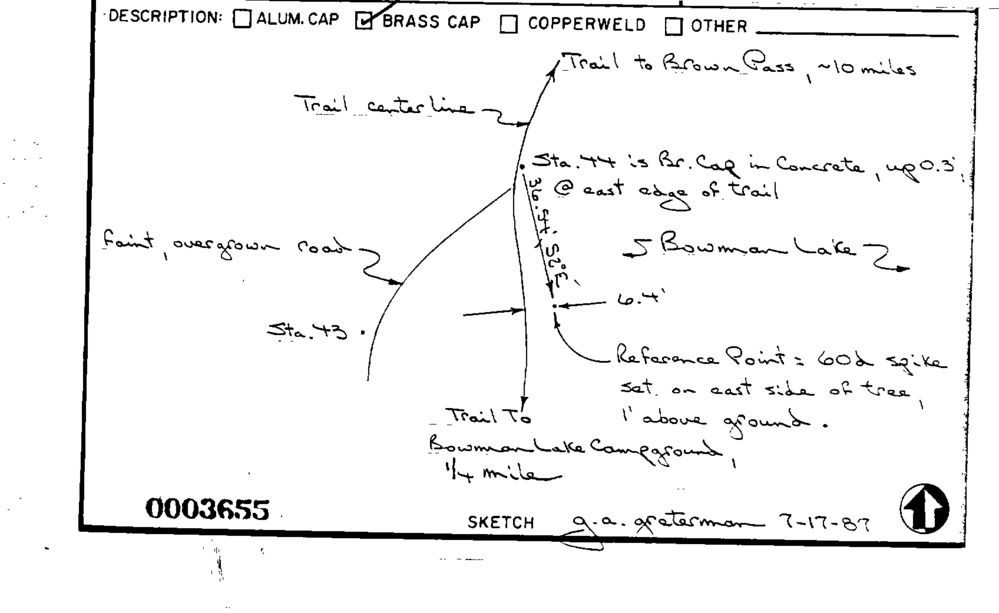 DESCRIPTION: ☐ ALUM. CAP ☑ BRASS CAP ☐ COPPERWELD ☐ OTHER
Trail to Brown Pass, ~10 miles
Trail centerline
Sta. 44 is Br. Cap in Concrete, up 0.3',
@ east edge of trail
36.54' S2°E
Faint, overgrown road
Bowman Lake
6.4'
Sta. 43
Reference Point = 60d spike
set on east side of tree,
1' above ground.
Trail To
Bowman Lake Campground,
1/4 mile
0003655
SKETCH g.a. graterman 7-17-87